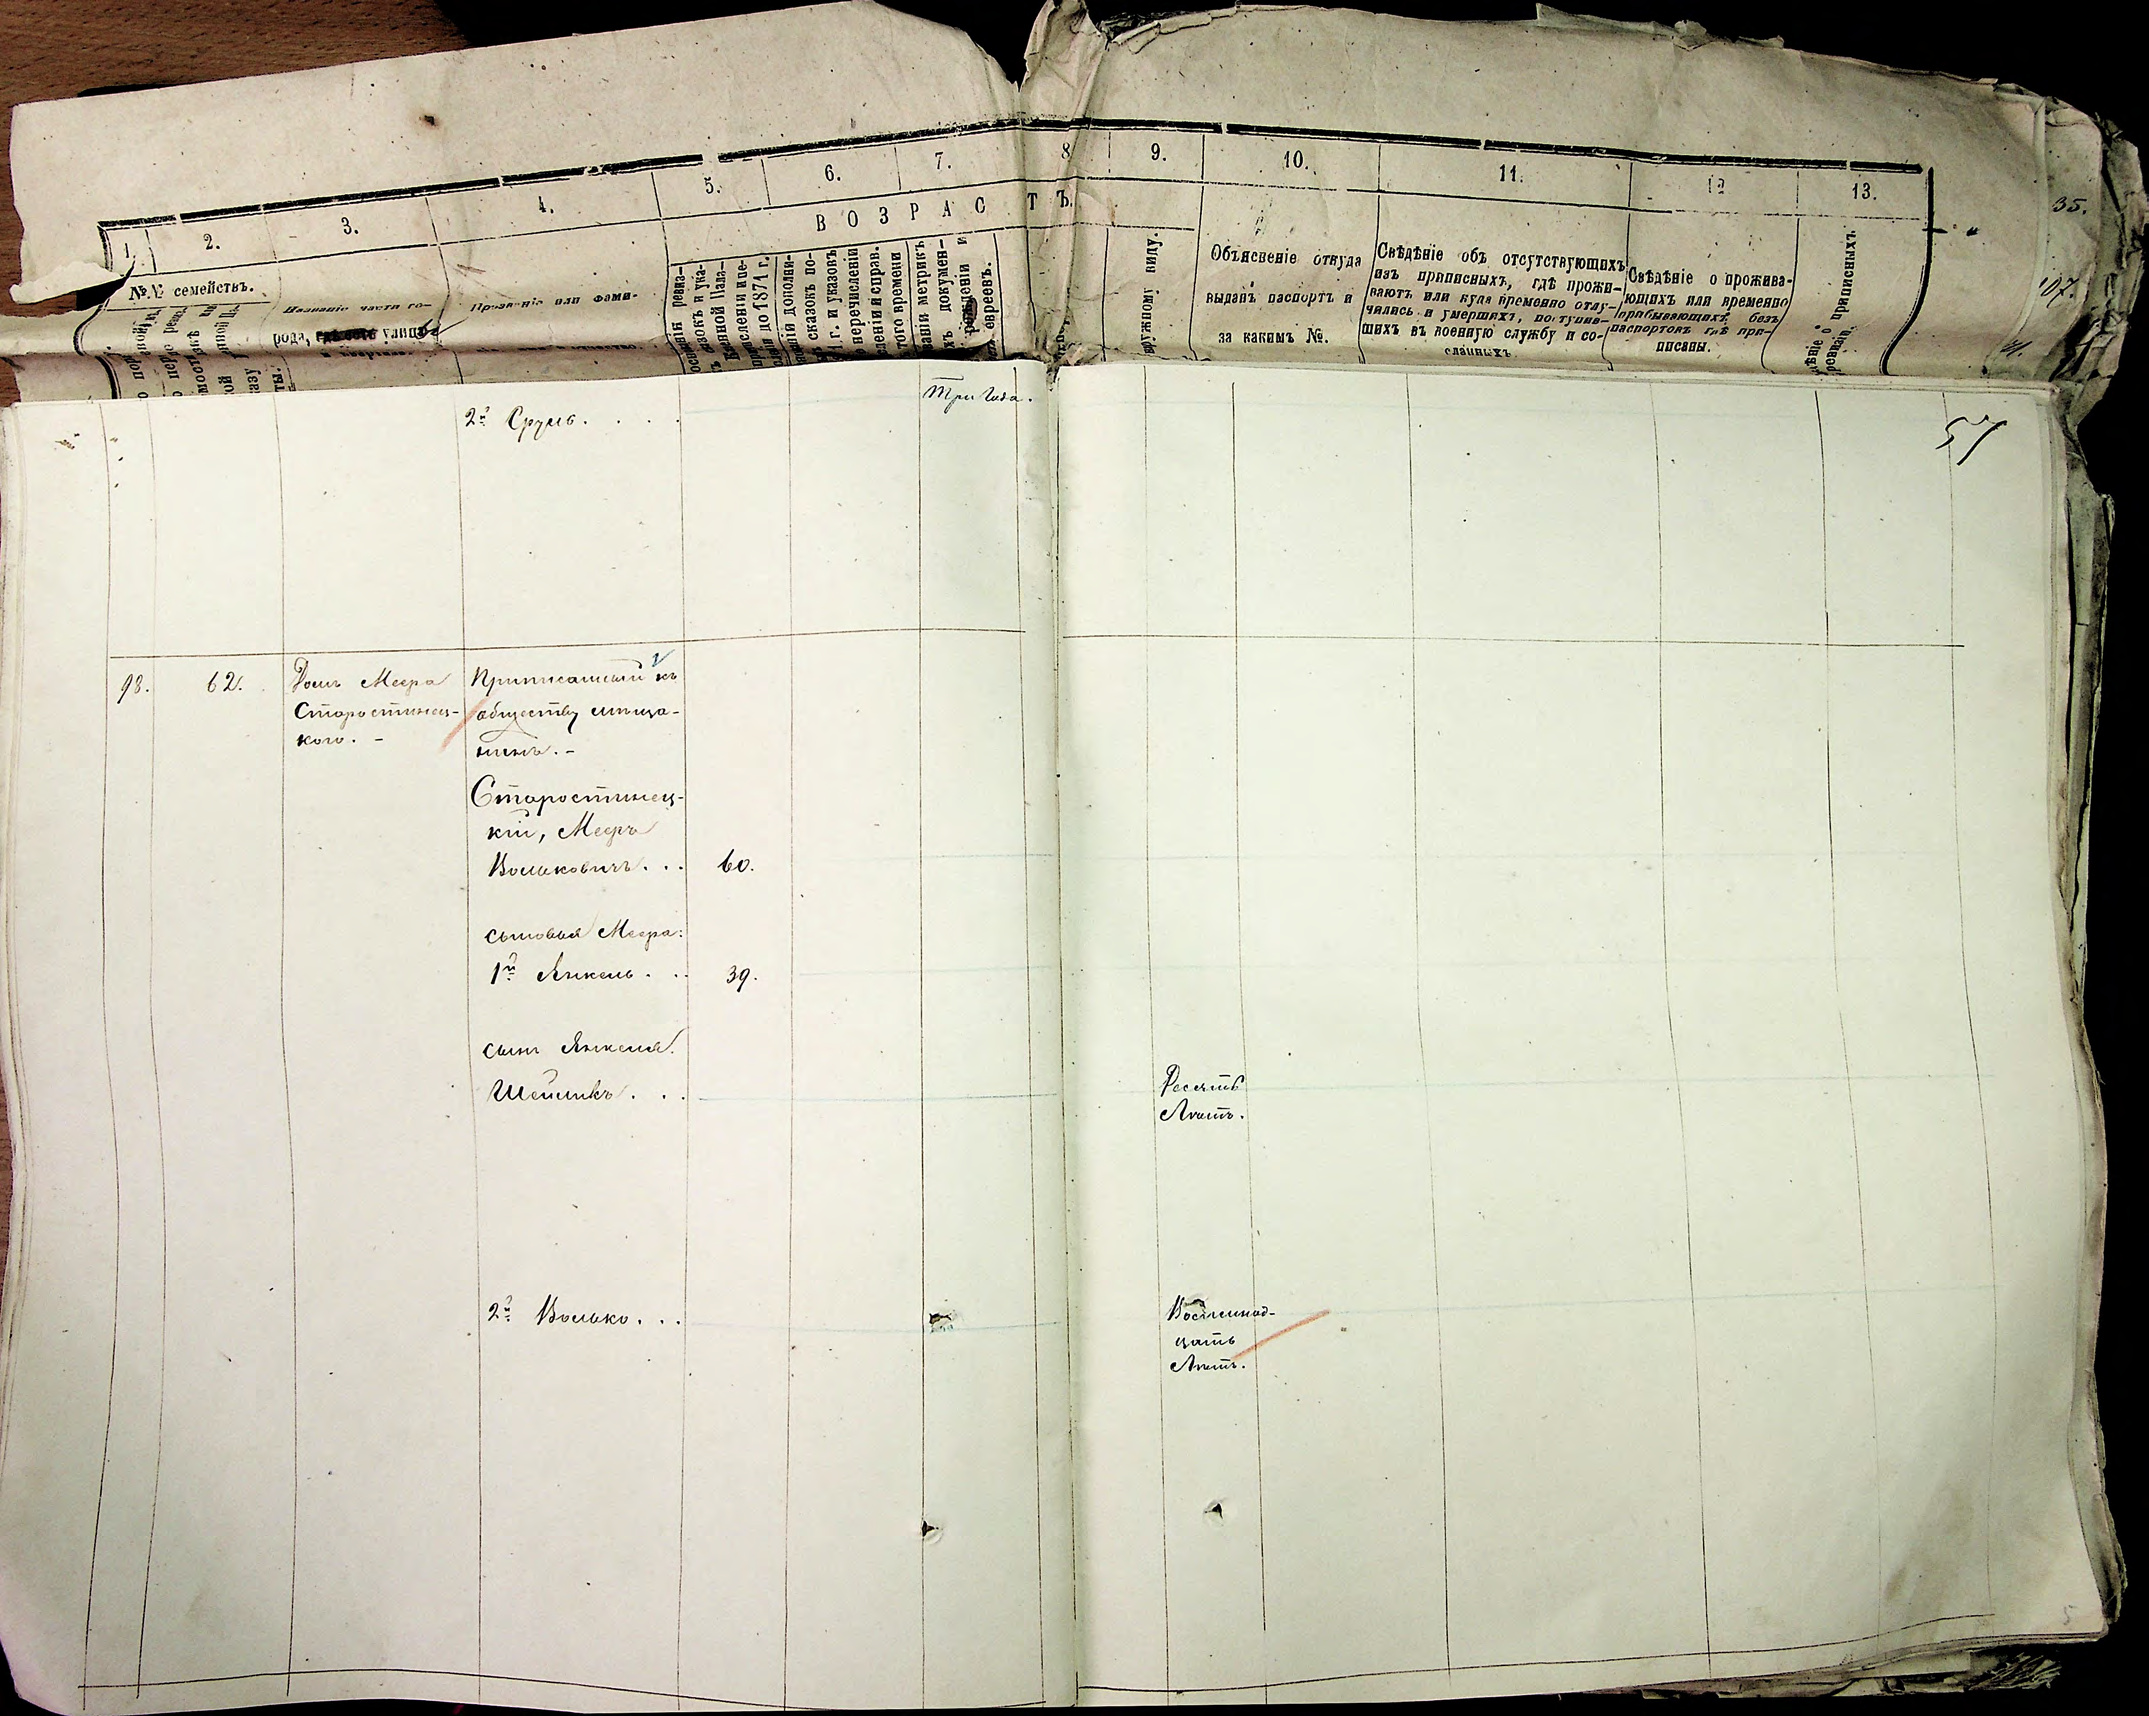 1.
2.
3.
4.
5.
6.
7.
8
9.
10.
11.
12
13.
35.
107.
ВОЗРАСТЪ.
№№ семействъ.
Названіе части го-
рода, улицы
Прозваніе или фами-
Объясненіе откуда
выданъ паспортъ и
за какимъ №.
Свѣдѣніе объ отсутствующихъ
изъ приписныхъ, гдѣ прожи-
ваютъ или куда временно отлу-
чились и умершихъ, поступив-
шихъ въ военную службу и со-
сланныхъ
Свѣдѣніе о прожива-
ющихъ или временно
пребывающихъ, безъ
паспортовъ гдѣ при-
писаны.
приписныхъ.
наружному виду.
57
2й Сруль. . . .
Три Года.
98.
62.
Домъ Меера
Старостинец-
каго. -
Приписанный къ
обществу мѣща-
нинъ. -
Старостинец-
кій, Мееръ
Вольковичъ. . .
60.
сыновья Меера:
1й Янкель. . .
39.
сынъ Янкеля.
Шеймикъ. . .
Десять
Лѣтъ.
2й Волько. . .
Восемнад-
цать
Лѣтъ.